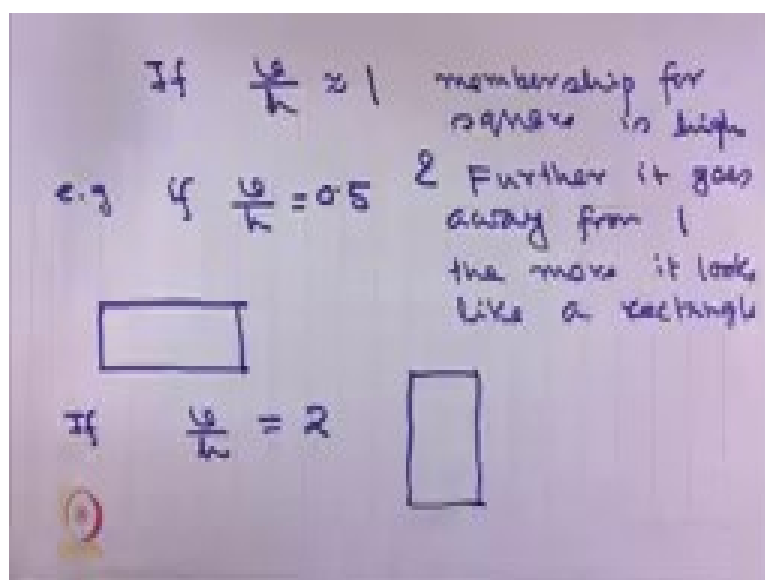 If w/h ≈ 1 membership for
square is high
e.g if w/h = 0.5 & Further it goes
away from 1
the more it looks
like a rectangle
If w/h = 2